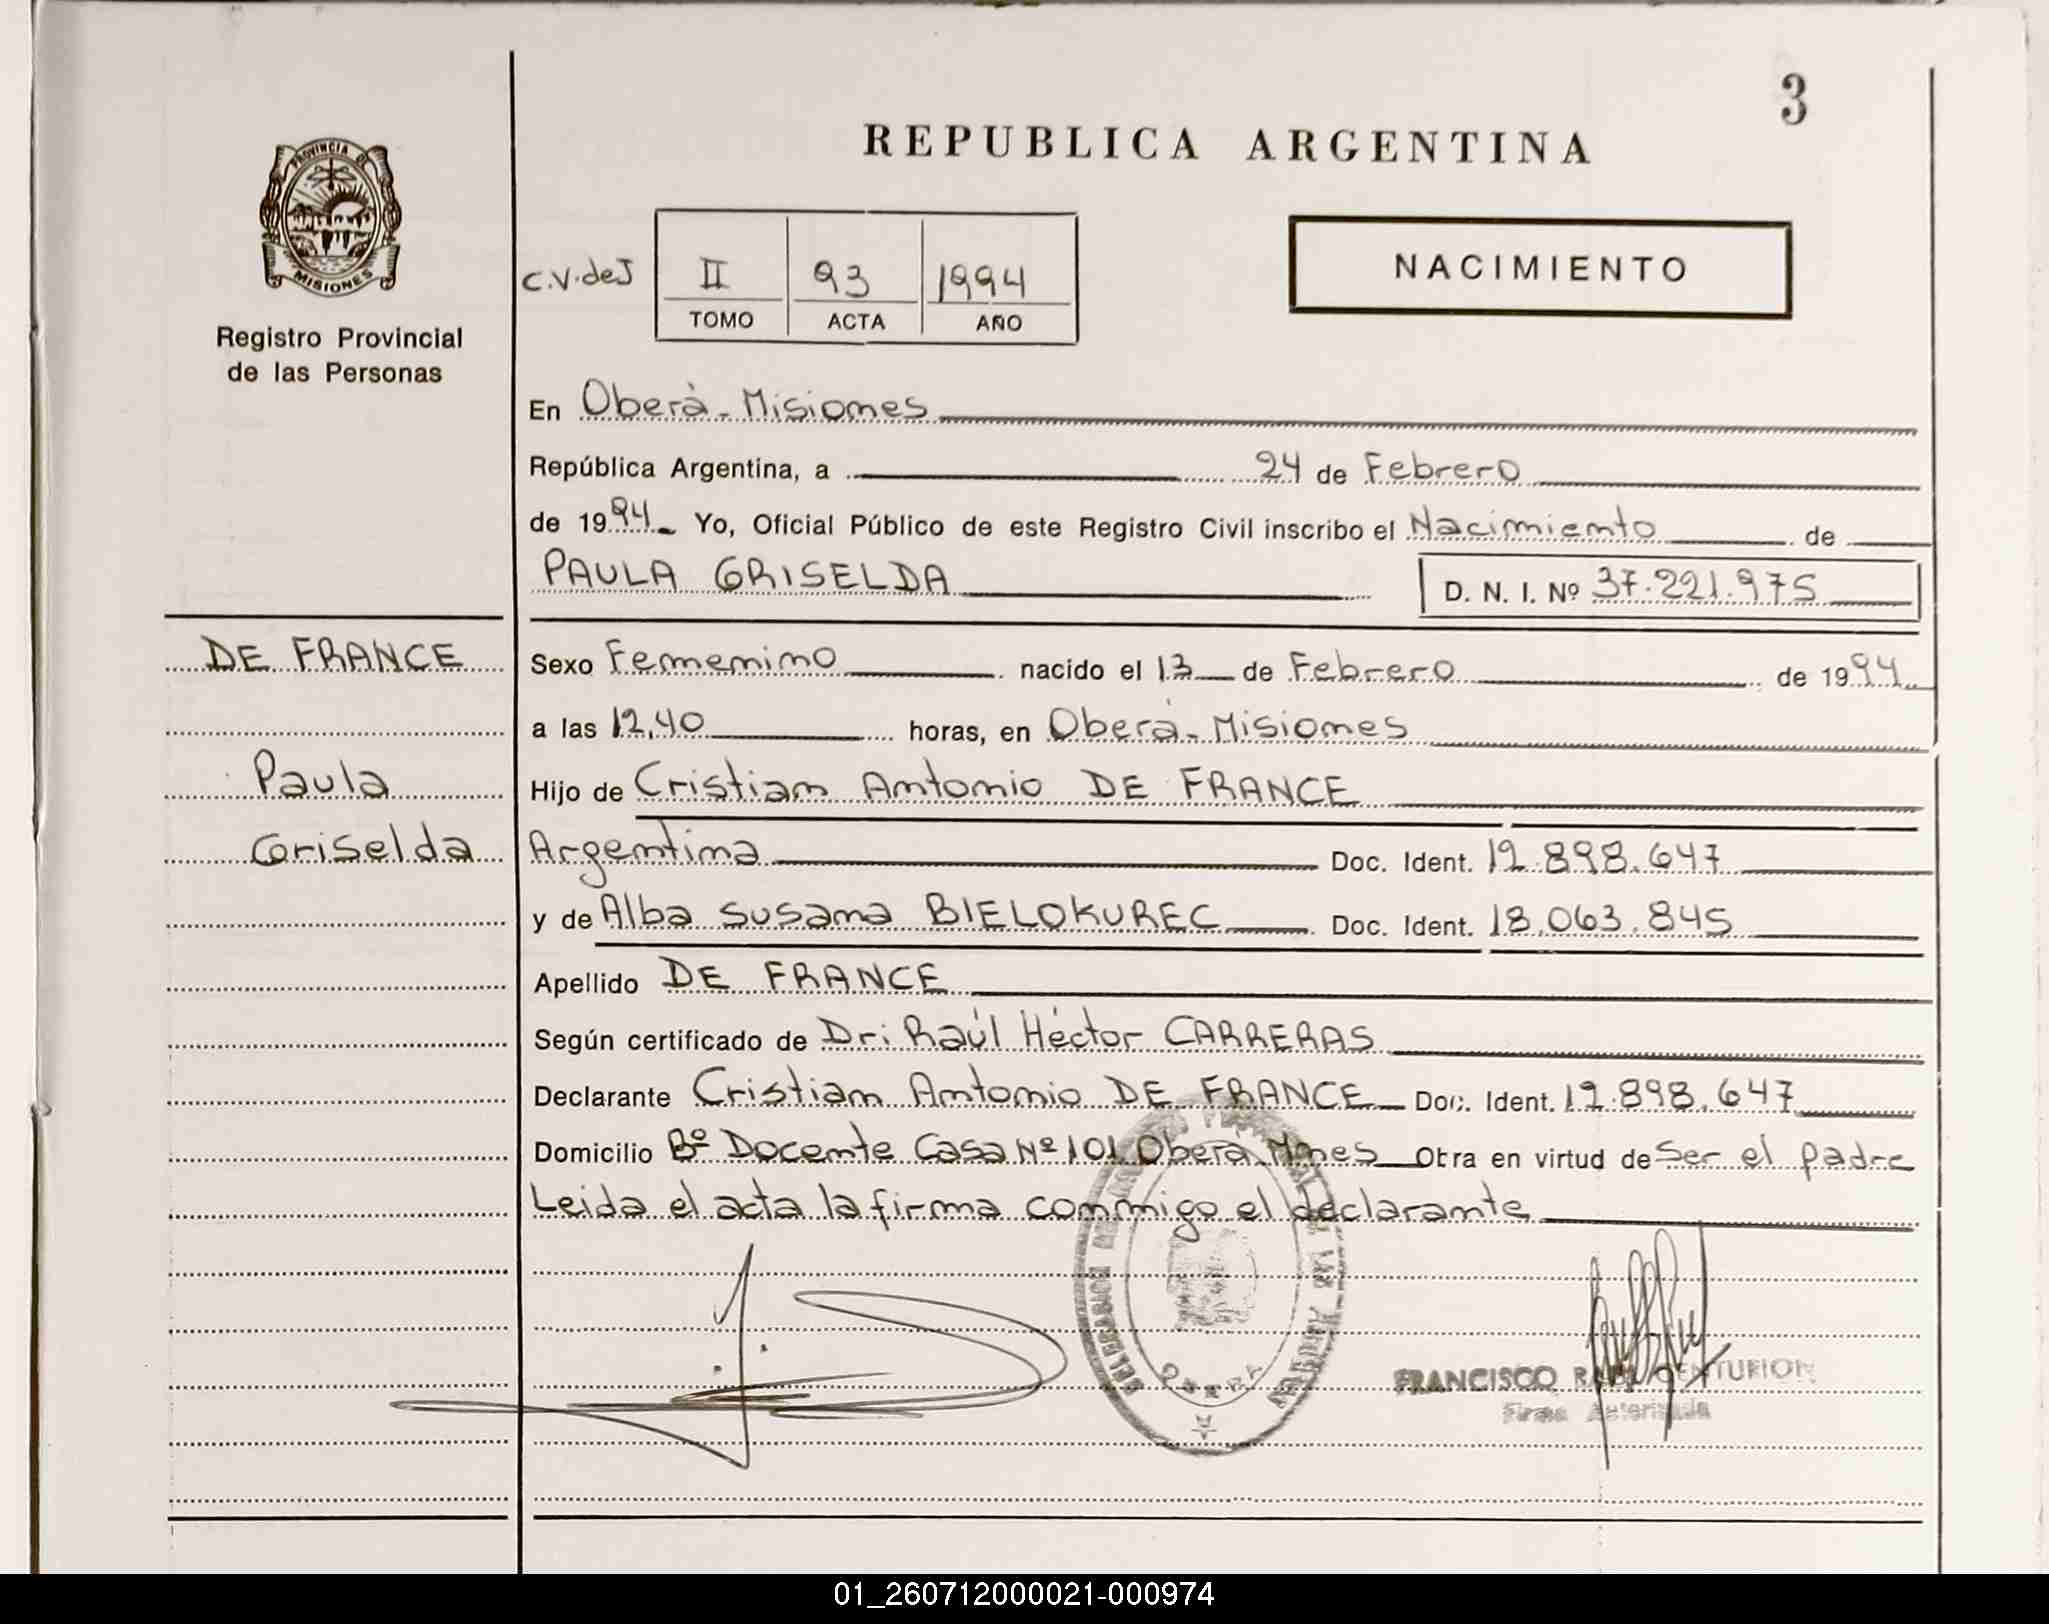 3
REPUBLICA ARGENTINA
PROVINCIA DE
MISIONES
Registro Provincial
de las Personas
C.V.deJ
II 93 1994
TOMO ACTA AÑO
NACIMIENTO
En Oberà - Misiones
República Argentina, a 24 de Febrero
de 1994 Yo, Oficial Público de este Registro Civil inscribo el Nacimiento de
PAULA GRISELDA D. N. I. Nº 37.221.975
DE FRANCE
Sexo Femenino nacido el 13 de Febrero de 1994
a las 12,40 horas, en Oberà - Misiones
Paula
Hijo de Cristian Antonio DE FRANCE
Griselda
Argentina Doc. Ident. 12.898.647
y de Alba Susana BIELOKUREC Doc. Ident. 18.063.845
Apellido DE FRANCE
Según certificado de Dr: Raúl Héctor CARRERAS
Declarante Cristian Antonio DE FRANCE Doc. Ident. 12.898.647
Domicilio Bº Docente Casa Nº 101 Oberà Mnes Obra en virtud de Ser el padre
Leida el acta la firma conmigo el declarante
FRANCISCO RAUL CENTURION
Firma Autorizada
01_260712000021-000974